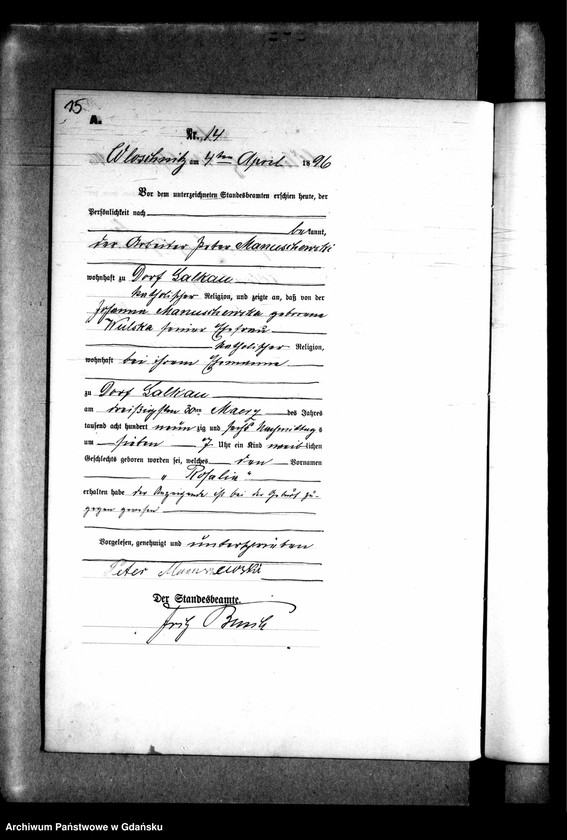 15
A.
Nr. 14
Wloschnitz am 4ten April 1896
Vor dem unterzeichneten Standesbeamten erschien heute, der
Persönlichkeit nach
bekannt,
der Arbeiter Peter Manuschewski
wohnhaft zu Dorf Lalkau
katholischer Religion, und zeigte an, daß von der
Johanna Manuschewska geborene
seiner Ehefrau
katholischer Religion,
wohnhaft bei ihrem Ehemanne
zu Dorf Lalkau
am dreißigsten 30ten Maerz des Jahres
tausend acht hundert neunzig und sechs Nachmittags
um sieben 7 Uhr ein Kind weiblichen
Geschlechts geboren worden sei, welches den Vornamen
„Rosalie“
erhalten habe der Anzeigende ist bei der Geburt zu-
gegen gewesen
Vorgelesen, genehmigt und unterschrieben
Peter
Der Standesbeamte.
Fritz
Archiwum Państwowe w Gdańsku